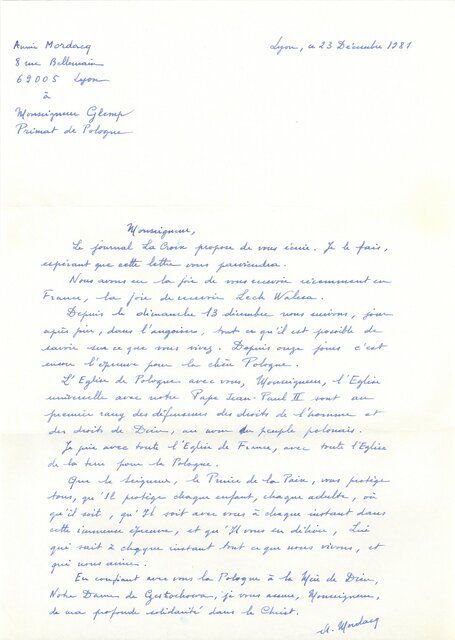 Annie Mordacq
8 rue Bellemain
69005 Lyon
à
Monseigneur Glemp
Primat de Pologne
Lyon, ce 23 Décembre 1981
Monseigneur,
Le journal La Croix propose de vous écrire. Je le fais,
espérant que cette lettre vous parviendra.
Nous avons eu la joie de vous recevoir récemment en
France, la joie de recevoir Lech Walesa.
Depuis le dimanche 13 décembre nous suivons, jour
après jour, dans l'angoisse, tout ce qu'il est possible de
savoir sur ce que vous vivez. Depuis onze jours c'est
encore l'épreuve pour la chère Pologne.
L'Eglise de Pologne avec vous, Monseigneur, l'Eglise
universelle avec notre Pape Jean-Paul II sont au
premier rang des défenseurs des droits de l'homme et
des droits de Dieu, au nom du peuple polonais.
Je prie avec toute l'Eglise de France, avec toute l'Eglise
de la terre pour la Pologne.
Que le Seigneur, le Prince de la Paix, vous protège
tous, qu'Il protège chaque enfant, chaque adulte, où
qu'il soit, qu'Il soit avec vous à chaque instant dans
cette immense épreuve, et qu'Il vous en délivre, Lui
qui sait à chaque instant tout ce que nous vivons, et
qui nous aime.
En confiant avec vous la Pologne à la Mère de Dieu,
Notre Dame de Czestochowa, je vous assure, Monseigneur,
de ma profonde solidarité dans le Christ.
A. Mordacq